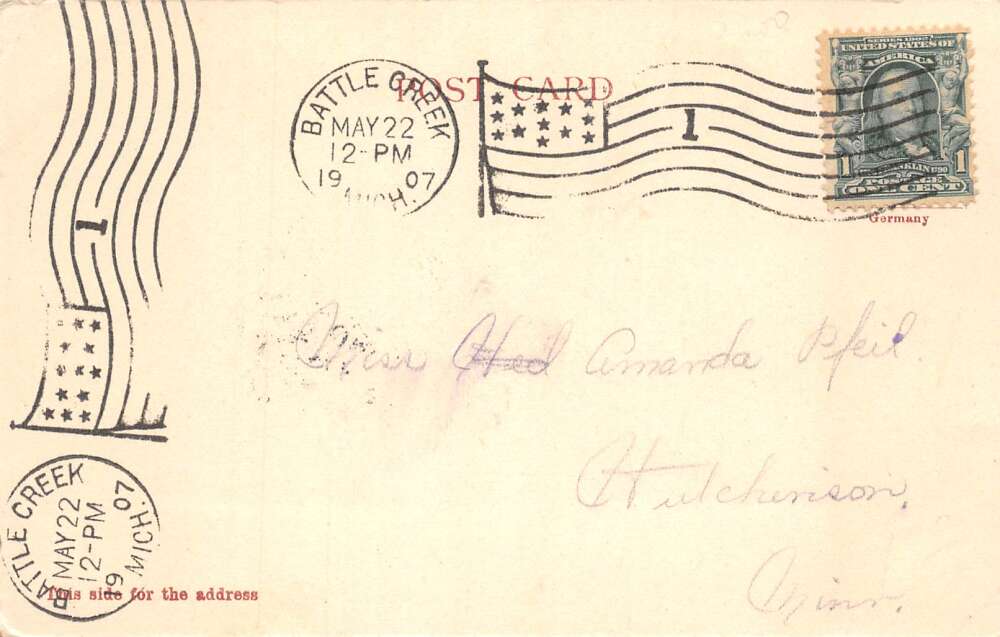 POST CARD
BATTLE CREEK
MAY 22
12-PM
1907
MICH.
1
SERIES 1902
UNITED STATES OF
AMERICA
1 FRANKLIN 1
POSTAGE
ONE CENT
Germany
1
Miss Hed Amanda Pfeil
Hutchinson,
Minn.
BATTLE CREEK
MAY 22
12-PM
1907
MICH.
This side for the address